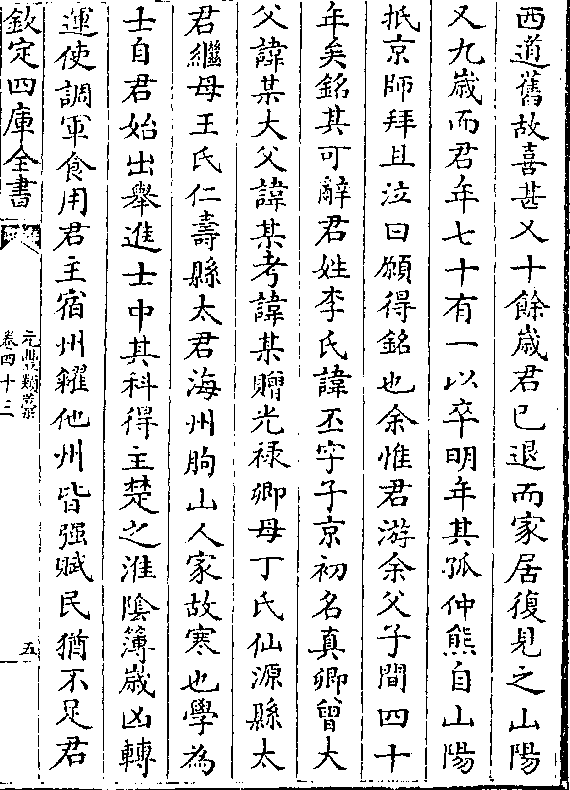 西道舊故喜甚又十餘歲君已退而家居復見之山陽
又九歲而君年七十有一以卒明年其孤仲熊自山陽
抵京師拜且泣曰願得銘也余惟君游余父子間四十
年矣銘其可辭君姓李氏諱丕字子京初名真卿曾大
父諱某大父諱某考諱某贈光祿卿母丁氏仙源縣太
君繼母王氏仁壽縣太君海州朐山人家故寒也學為
士自君始出舉進士中其科得主楚之淮陰簿歲凶轉
運使調軍食用君主宿州糴他州皆强賦民猶不足君
欽定四庫全書
元豐類藁
卷四十三
五